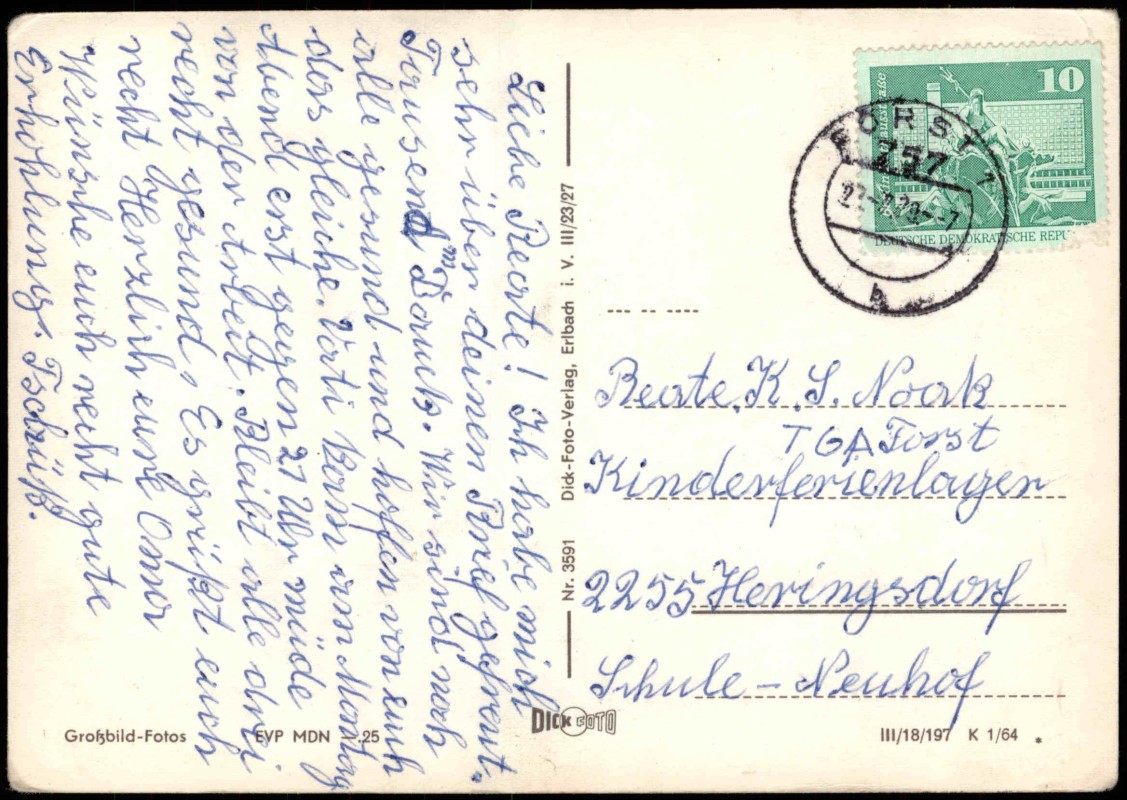 Liebe Beate! Ich habe mich
sehr über deinen Brief gefreut.
Tausend Dank. Wir sind noch
alle gesund und hoffen von euch
das gleiche. Vati kam am Montag
Abend erst gegen 21 Uhr müde
von der Arbeit. Bleibt alle drei
recht gesund. Es grüßt euch
recht Herzlich eure Oma
Wünsche euch recht gute
Erhohlung. Tschüß.
Großbild-Fotos EVP MDN -.25
Nr. 3591 Dick-Foto-Verlag, Erlbach i. V. III/23/27
DICK FOTO
10
DEUTSCHE DEMOKRATISCHE REPU
FORST 1
757
b
Beate. K. S. Noak
TGA Forst
Kinderferienlager
2255 Heringsdorf
Schule - Neuhof
III/18/197 K 1/64 *